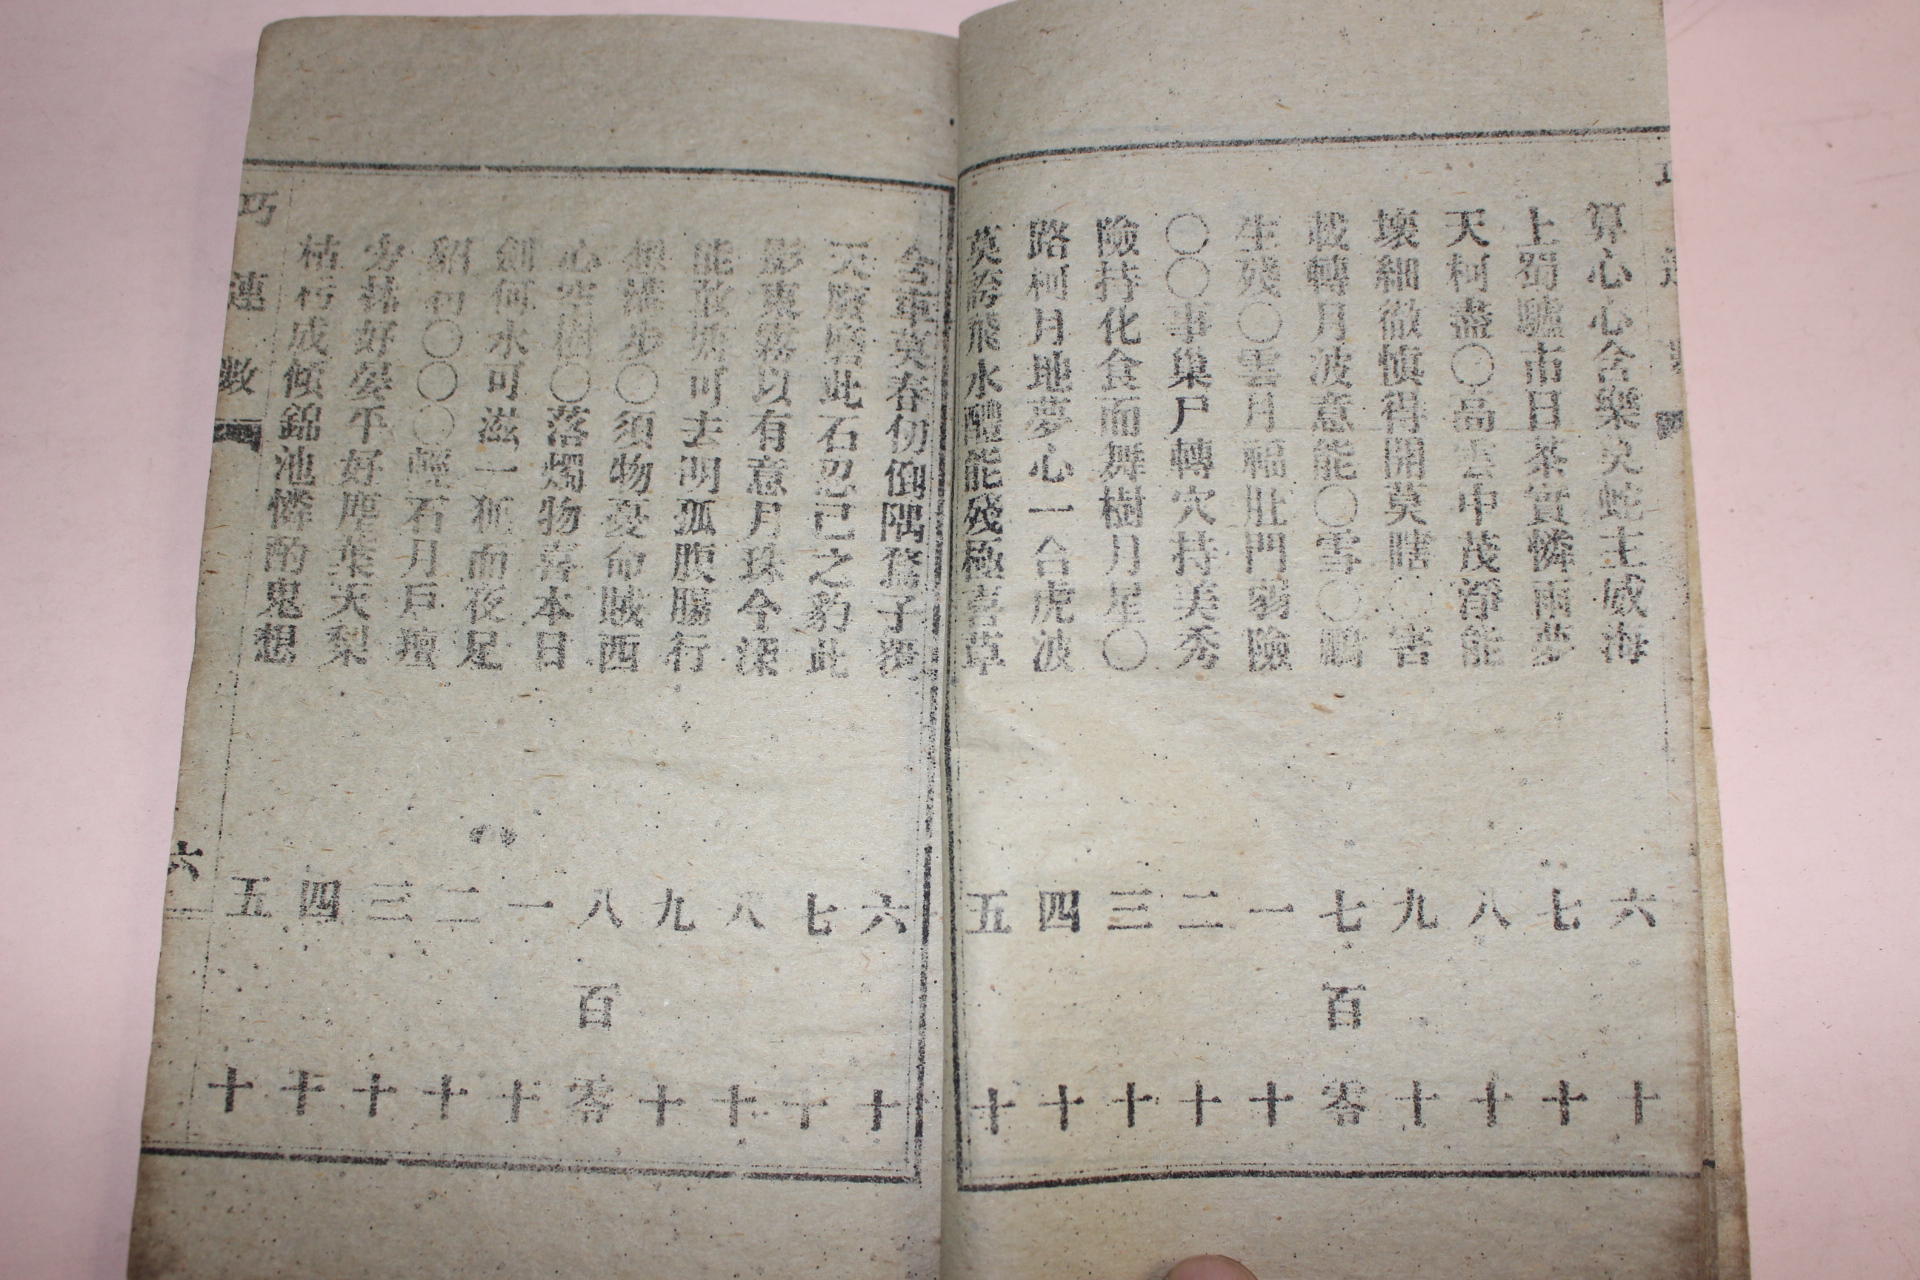 算心心舍樂炎蛇主威海
六
十
上蜀驢市日茶實憐雨夢
七
十
天柯盡〇高雲中茂淨能
八
十
壞細微慎得開莫瞎〇害
九
十
載轉月波意能〇雪〇鵬
七百零
生殘〇雲月福肚門弱險
一
十
〇〇事巢尸轉穴持美秀
二
十
險持化食而舞樹月星〇
三
十
路柯月地夢心一合虎波
四
十
英誇飛水醴能殘極喜草
五
十
英春仞倒隅子
六
十
天此石忍己之豹此
七
十
影東霧以有意月珠今深
八
十
能放可去明孤腹腸行
九
十
想步〇須物憂命賊西
八百零
心空樹〇落燭物喜本日
一
十
創何水可滋一而夜足
二
十
紹〇〇〇輕石月戶
三
十
林好晏平好塵葉天梨
四
十
枯朽成傾錦池憐酌鬼想
五
十
巧連數
六